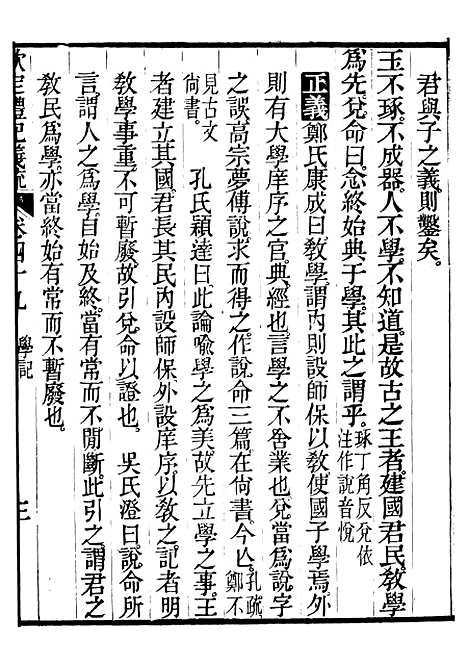 君與子之義則鑿矣。
玉不琢。不成器。人不學。不知道。是故古之王者。建國君民。敎學
爲先。兌命曰。念終始典于學。其此之謂乎。琢丁角反兌依
注作說音悅
正義 鄭氏康成曰敎學。謂內則設師保以敎。使國子學焉。外
則有大學庠序之官。典。經也。言學之不舍業也。兌當爲說。字
之誤。高宗夢傅說。求而得之。作說命三篇。在尙書。今亾。孔疏
鄭不
見古文
尙書。 孔氏穎達曰。此論喩學之爲美。故先立學之事。王
者建立其國。君長其民。內設師保。外設庠序。以敎之。記者明
敎學事重。不可暫廢。故引兌命以證也。 吳氏澄曰。說命所
言。謂人之爲學。自始及終。當有常而不閒斷。此引之。謂君之
敎民爲學。亦當終始有常而不暫廢也。
欽定禮記義疏 卷四十九 學記 三